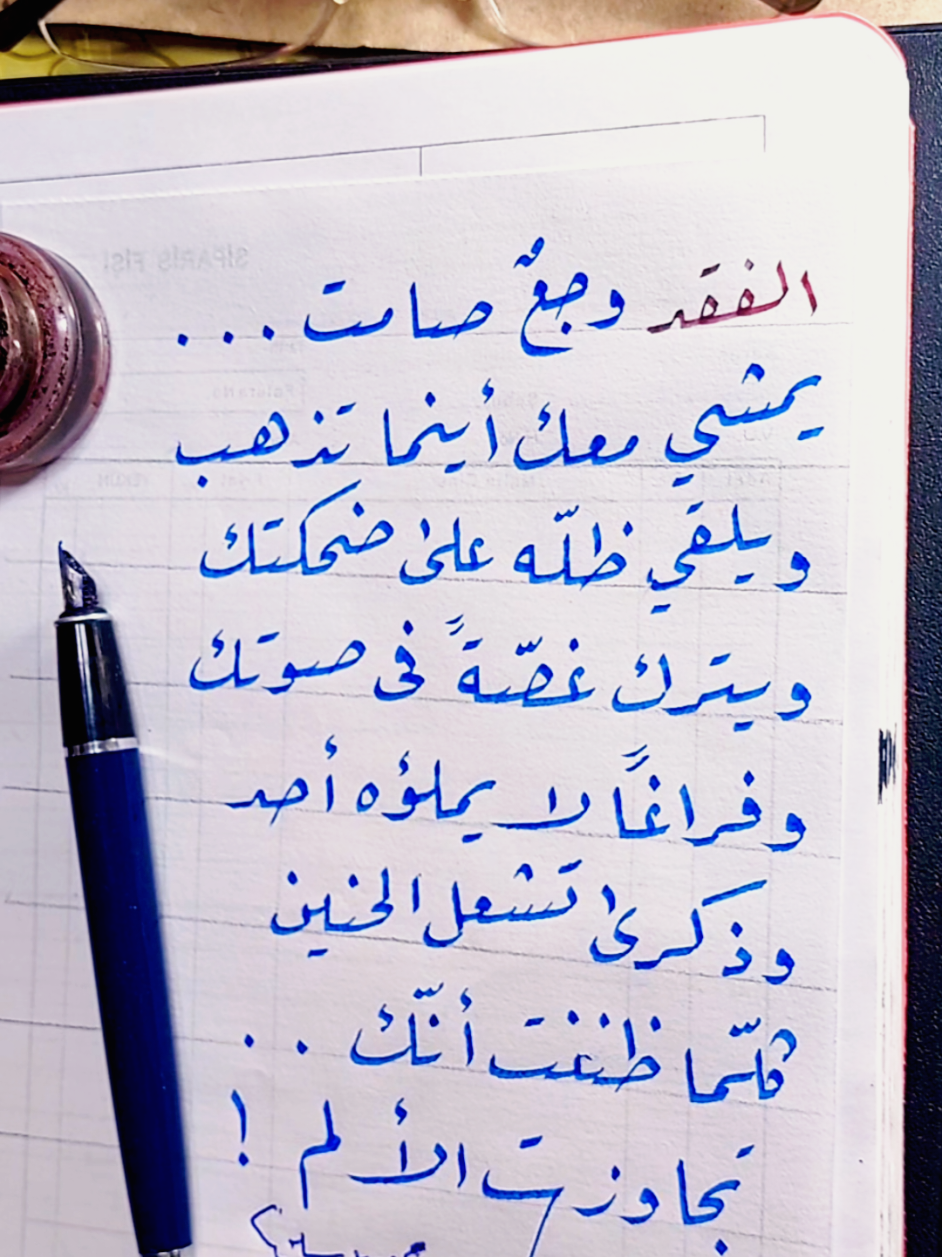 الفقد وجعٌ صامت...
يمشي معك أينما تذهب
ويلقي ظلّه على ضحكتك
ويترك غصّةً في صوتك
وفراغًا لا يملؤه أحد
وذكرى تشعل الحنين
كلّما ظننت أنّك ..
تجاوزت الألم !